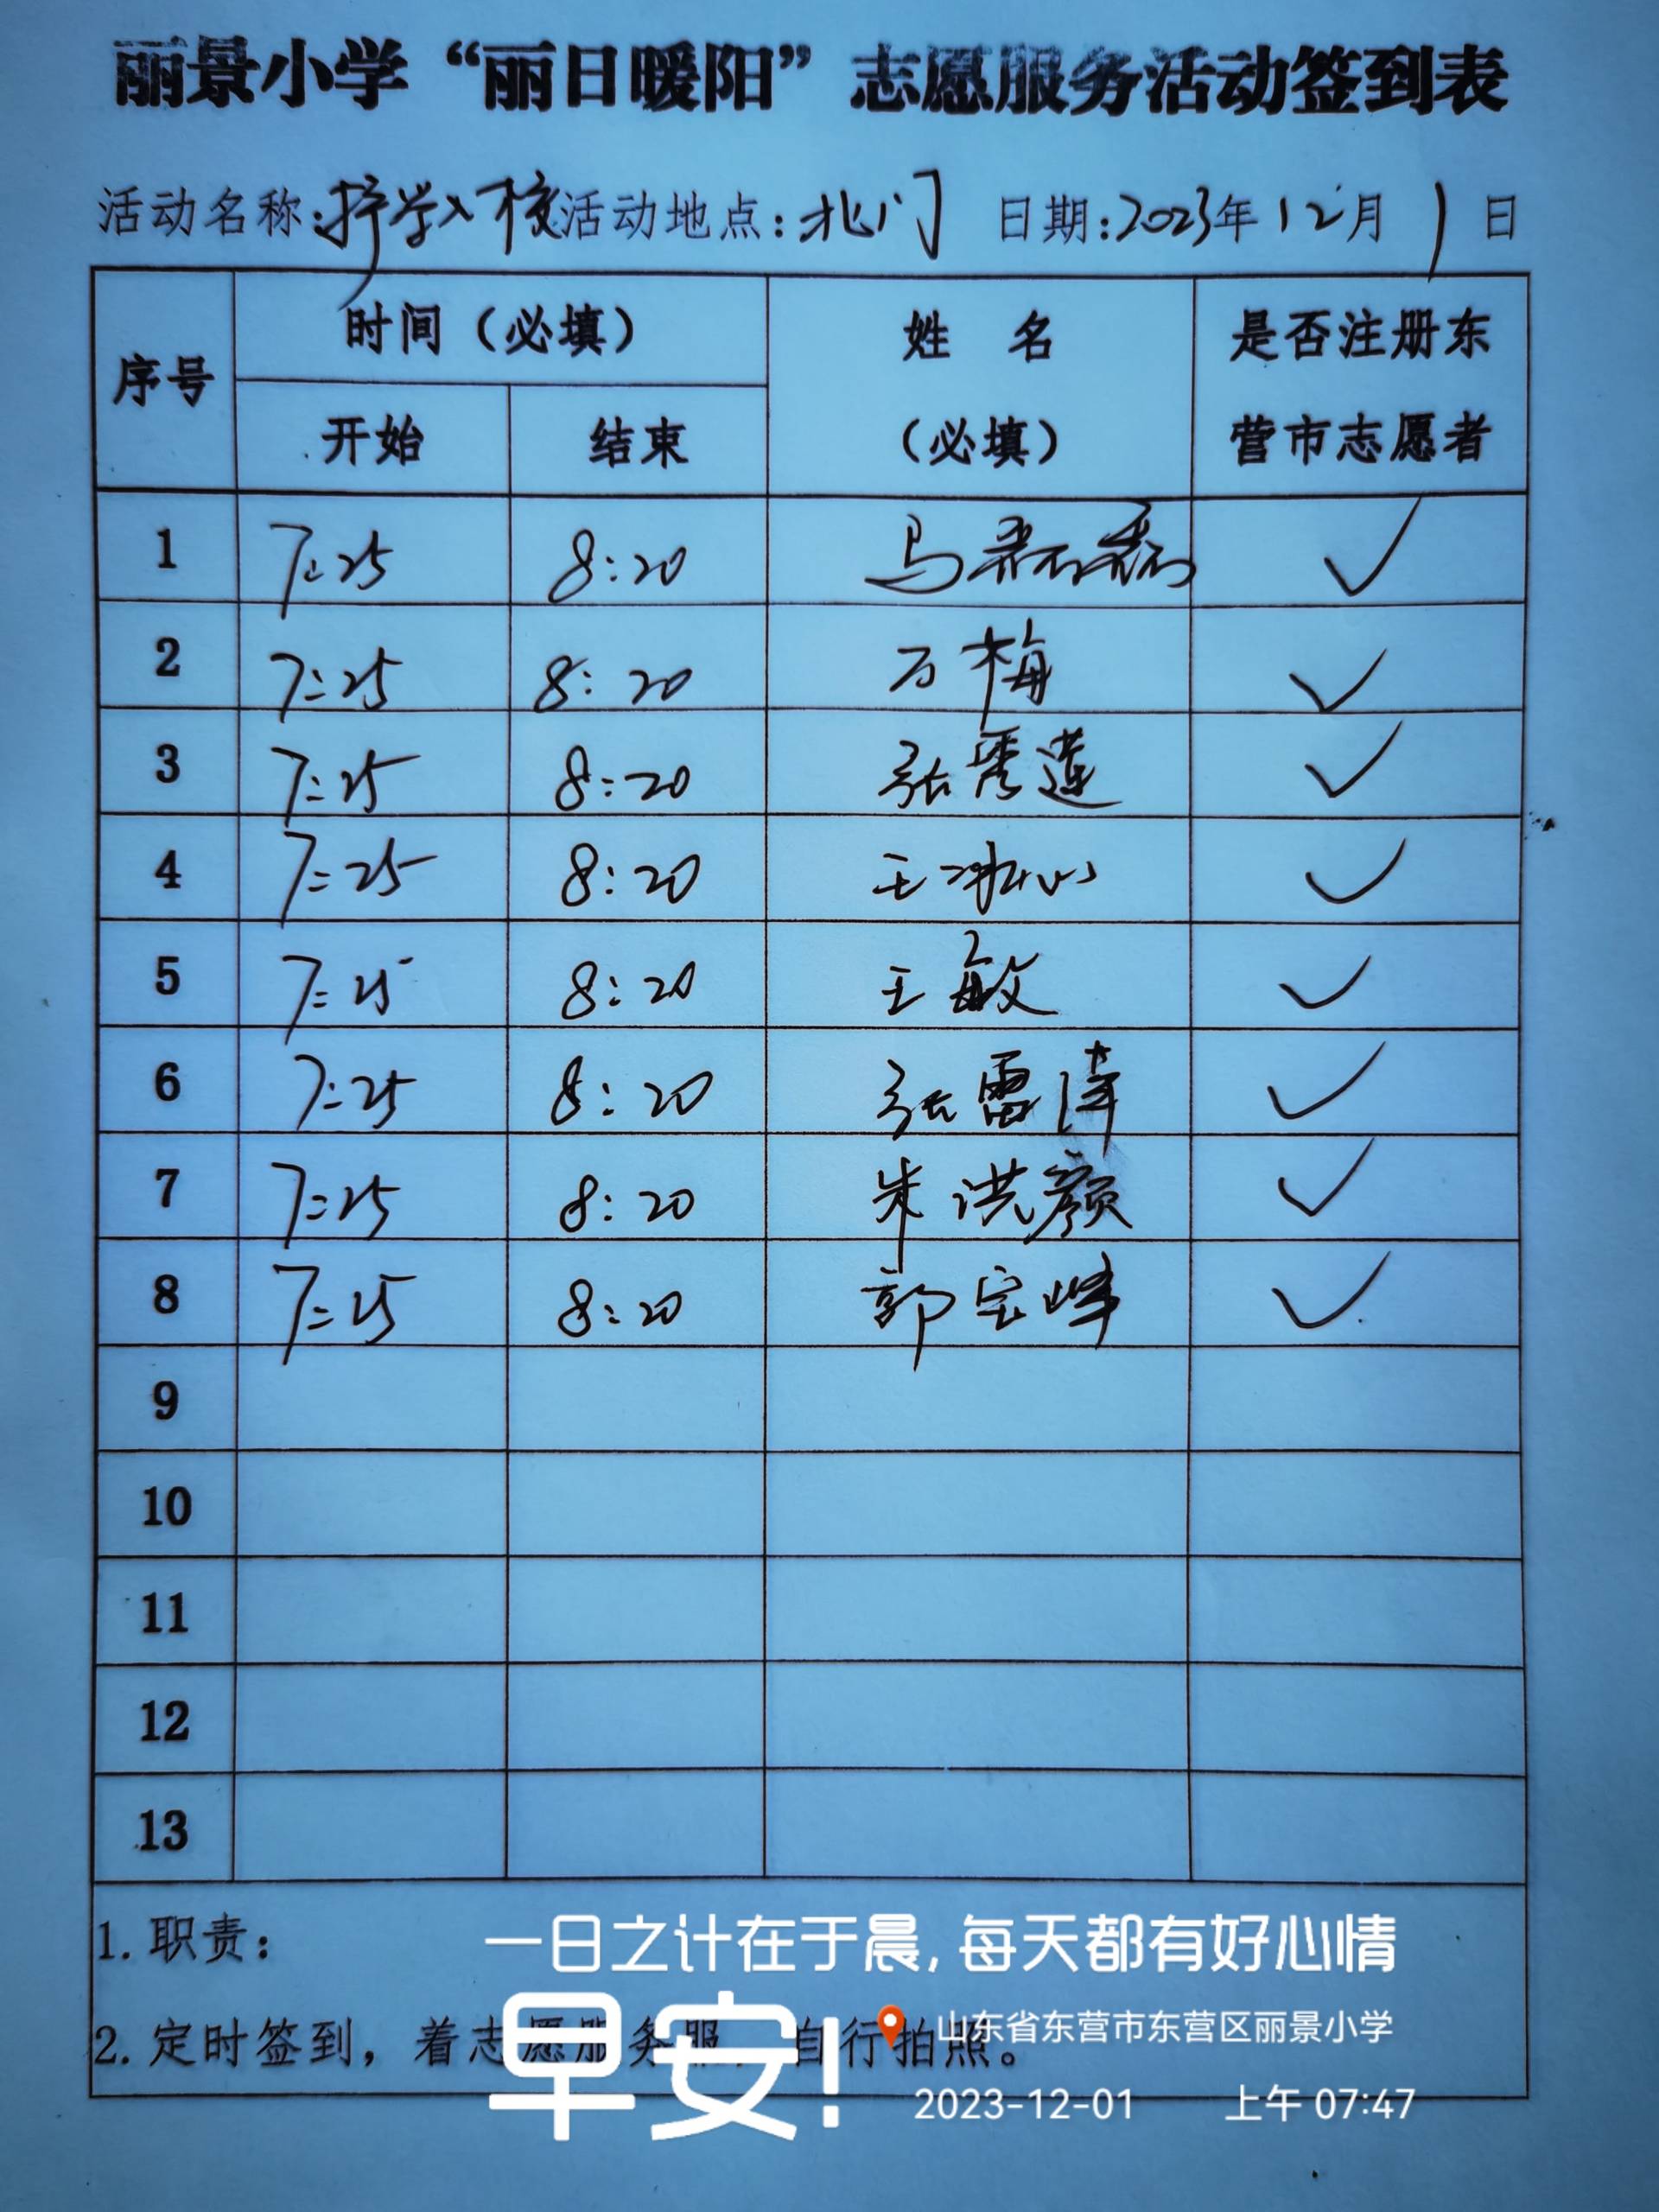 丽景小学“丽日暖阳”志愿服务活动签到表
活动名称:护学入校 活动地点:北门 日期:2023年12月1日
序号 时间(必填) 姓 名 是否注册东
开始 结束 (必填) 营市志愿者
1 7:25 8:20 马磊磊 ✓
2 7:25 8:20 万梅 ✓
3 7:25 8:20 张秀莲 ✓
4 7:25 8:20 王冰心 ✓
5 7:25 8:20 王敏 ✓
6 7:25 8:20 张雷 ✓
7 7:25 8:20 朱洪颜 ✓
8 7:25 8:20 郭宝峰 ✓
9
10
11
12
13
1.职责:
一日之计在于晨,每天都有好心情
2.定时签到,着志愿服务服,自行拍照。
早安!
山东省东营市东营区丽景小学
2023-12-01 上午 07:47